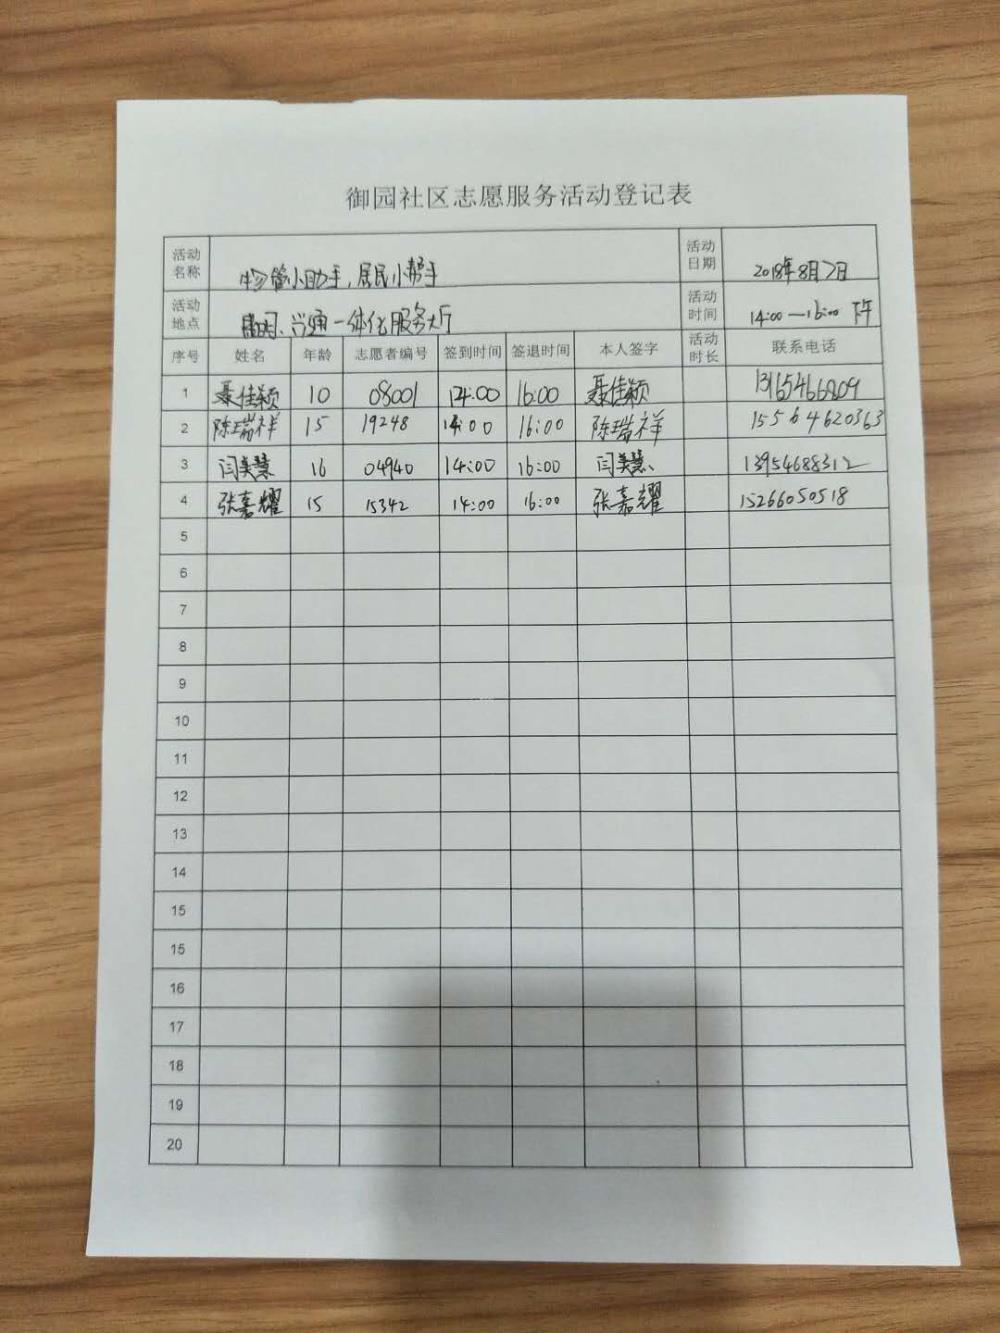 御园社区志愿服务活动登记表
活动名称 物管小助手,居民小帮手 活动日期 2018年8月7日
活动地点 兴通一体化服务大厅 活动时间 14:00—16:00 下午
序号 姓名 年龄 志愿者编号 签到时间 签退时间 本人签字 活动时长 联系电话
1 聂佳颖 10 08001 14:00 16:00 聂佳颖
2 陈瑞祥 15 19248 14:00 16:00 陈瑞祥 15564620363
3 闫美慧 16 04940 14:00 16:00 闫美慧 13954688312
4 张嘉耀 15 15342 14:00 16:00 张嘉耀 15266050518
5
6
7
8
9
10
11
12
13
14
15
15
16
17
18
19
20